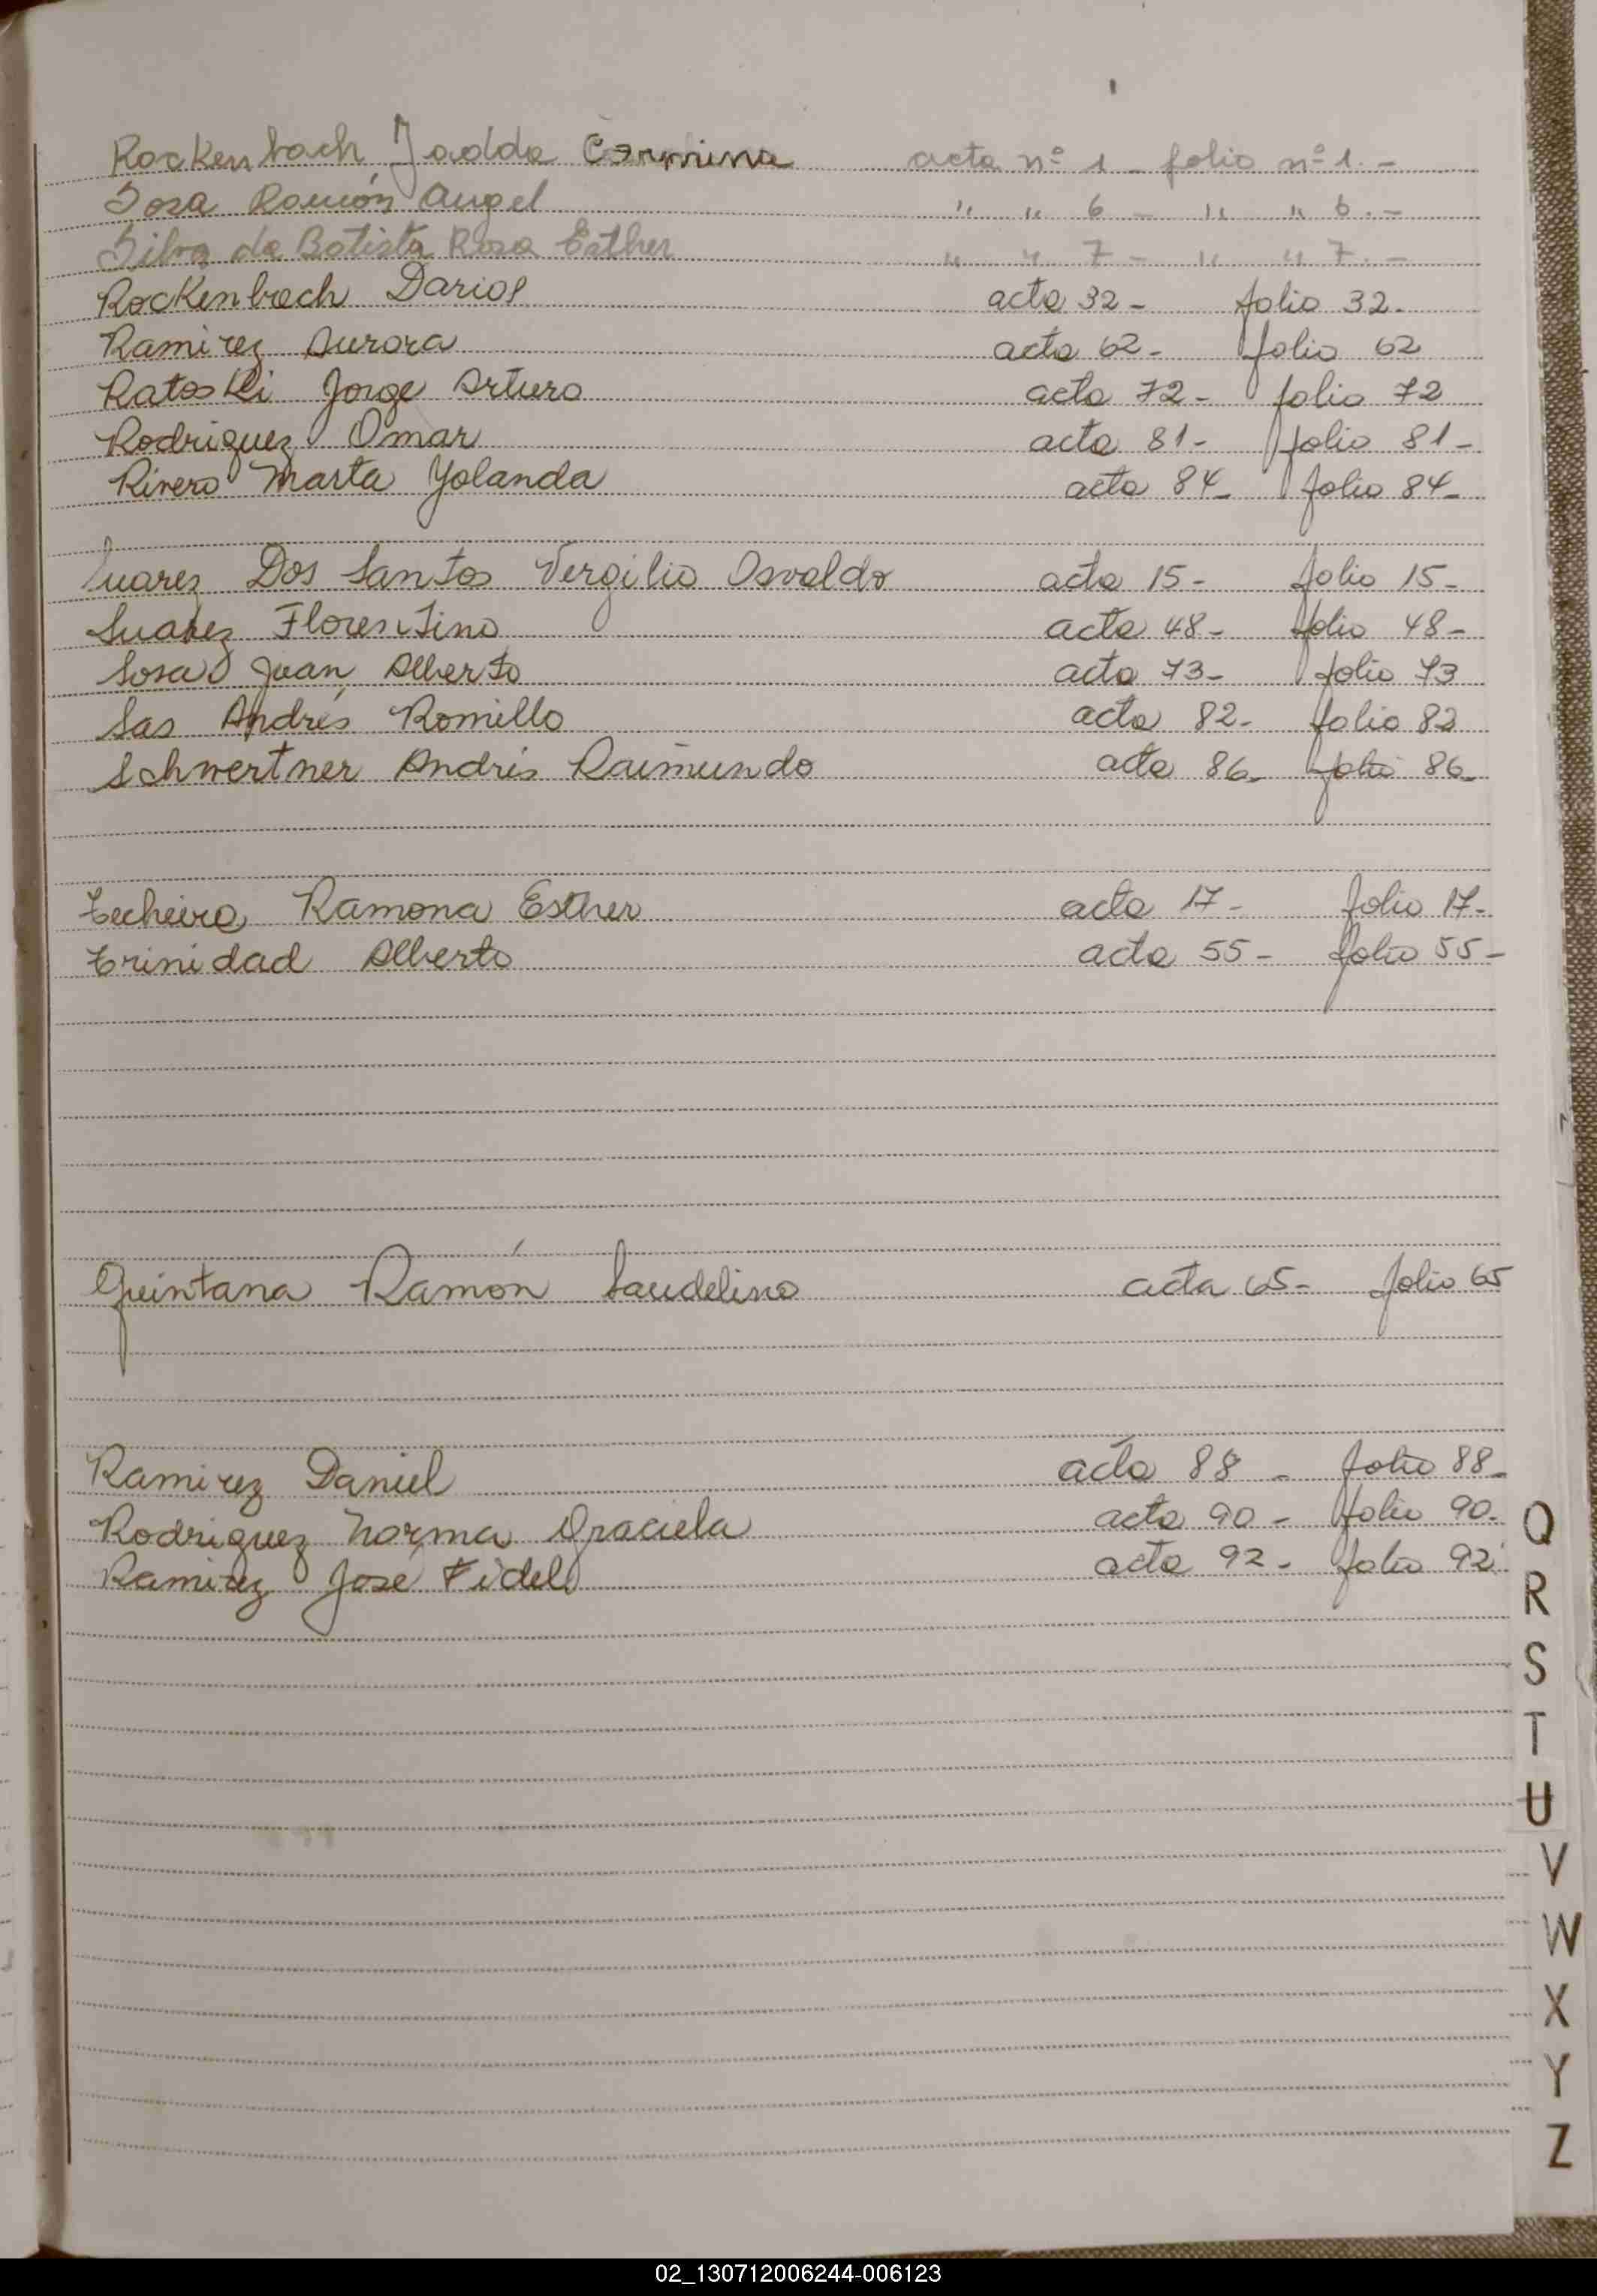 Rockenbach, Jadda Carmina acta nº 1 - folio nº 1.-
Sosa Ramón Angel " " 6 - " " 6.-
Silva de Batista Rosa Esther " " 7 - " " 7.-
Rockenbach Dario acta 32- folio 32.
Ramirez Aurora acta 62- folio 62
Ratoski Jorge Arturo acta 72- folio 72
Rodriguez Omar acta 81- folio 81-
Rivero Marta Yolanda acta 84- folio 84-
Suarez Dos Santos Vergilio Osvaldo acta 15- folio 15-
Suarez Florentino acta 48- folio 48-
Sosa Juan Alberto acta 73- folio 73
Sas Andrés Romillo acta 82- folio 82
Schwertner Andrés Raimundo acta 86- folio 86-
Techeira Ramona Esther acta 17- folio 17-
Trinidad Alberto acta 55- folio 55-
Quintana Ramón Laudelino acta 65- folio 65
Ramirez Daniel acta 88 - folio 88-
Rodriguez Norma Graciela acta 90 - folio 90-
Ramirez José Fidel acta 92- folio 92
Q
R
S
T
U
V
W
X
Y
Z
02_130712006244-006123